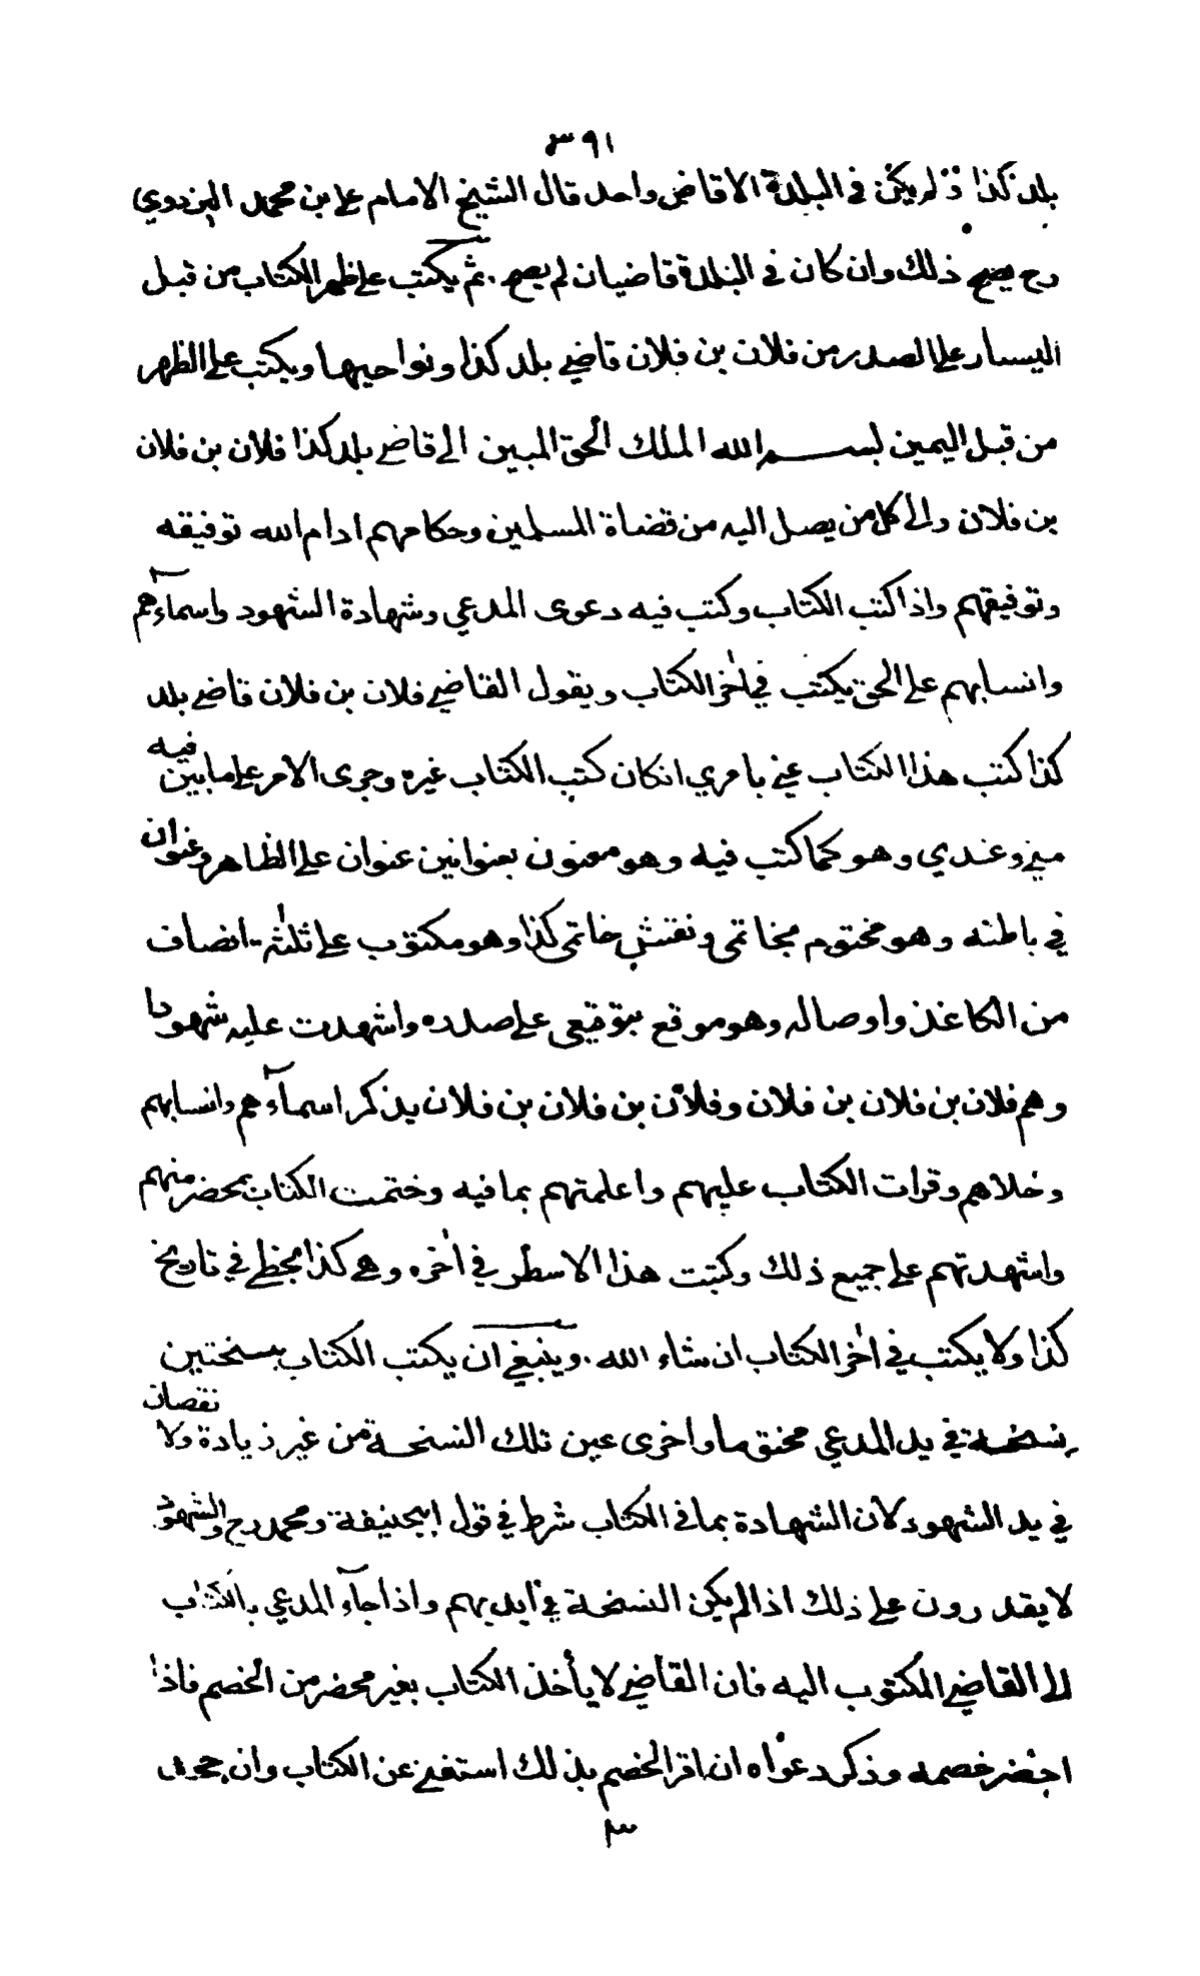 ٣٩١
بلد كذا ولم يكن في البلدة الا قاض واحد قال الشيخ الامام علي بن محمد البزدوي
رح يصح ذلك وان كان في البلدة قاضيان لم يصح . ثم يكتب على ظهر الكتاب من قبل
اليسار على الصدر من فلان بن فلان قاضي بلد كذا ونواحيها ويكتب على الظهر
من قبل اليمين بسم الله الملك الحق المبين الى قاضي بلد كذا فلان بن فلان
بن فلان والى كل من يصل اليه من قضاة المسلمين وحكامهم ادام الله توفيقه
وتوفيقهم واذا كتب الكتاب وكتب فيه دعوى المدعي وشهادة الشهود واسماءهم
وانسابهم على الحق يكتب في اخر الكتاب ويقول القاضي فلان بن فلان قاضي بلد
كذا كتب هذا الكتاب عني بامري انكان كتب الكتاب غيره وجرى الامر على ما بين فيه
مني وعندي وهو كما كتب فيه وهو معنون بعنوانين عنوان على الظاهر وعنوان
في باطنه وهو مختوم بخاتمى ونقش خاتمى كذا وهو مكتوب على ثلثة انصاف
من الكاغذ واوصاله وهو موقع بتوقيعى على صدره واشهدت عليه شهودا
وهم فلان بن فلان بن فلان وفلان بن فلان بن فلان يذكر اسماءهم وانسابهم
وحلاهم وقرات الكتاب عليهم واعلمتهم بما فيه وختمت الكتاب بمحضر منهم
واشهدتهم على جميع ذلك وكتبت هذا الاسطر في اخره وهي كذا بخطي في تاريخ
كذا ولا يكتب في اخر الكتاب ان شاء الله . وينبغي ان يكتب الكتاب بنسختين
نسخة في يد المدعي مختوما واخرى عين تلك النسخة من غير زيادة ولا نقصان
في يد الشهود لان الشهادة بما في الكتاب شرط في قول ابيحنيفة ومحمد رح والشهود
لا يقدرون على ذلك اذا لم يكن النسخة في ايديهم واذا جاء المدعي بالكتاب
الى القاضي المكتوب اليه فان القاضي لا يأخذ الكتاب بغير محضر من الخصم فاذا
احضر خصمه وذكر دعواه ان اقر الخصم بذلك استغنى عن الكتاب وان جحد